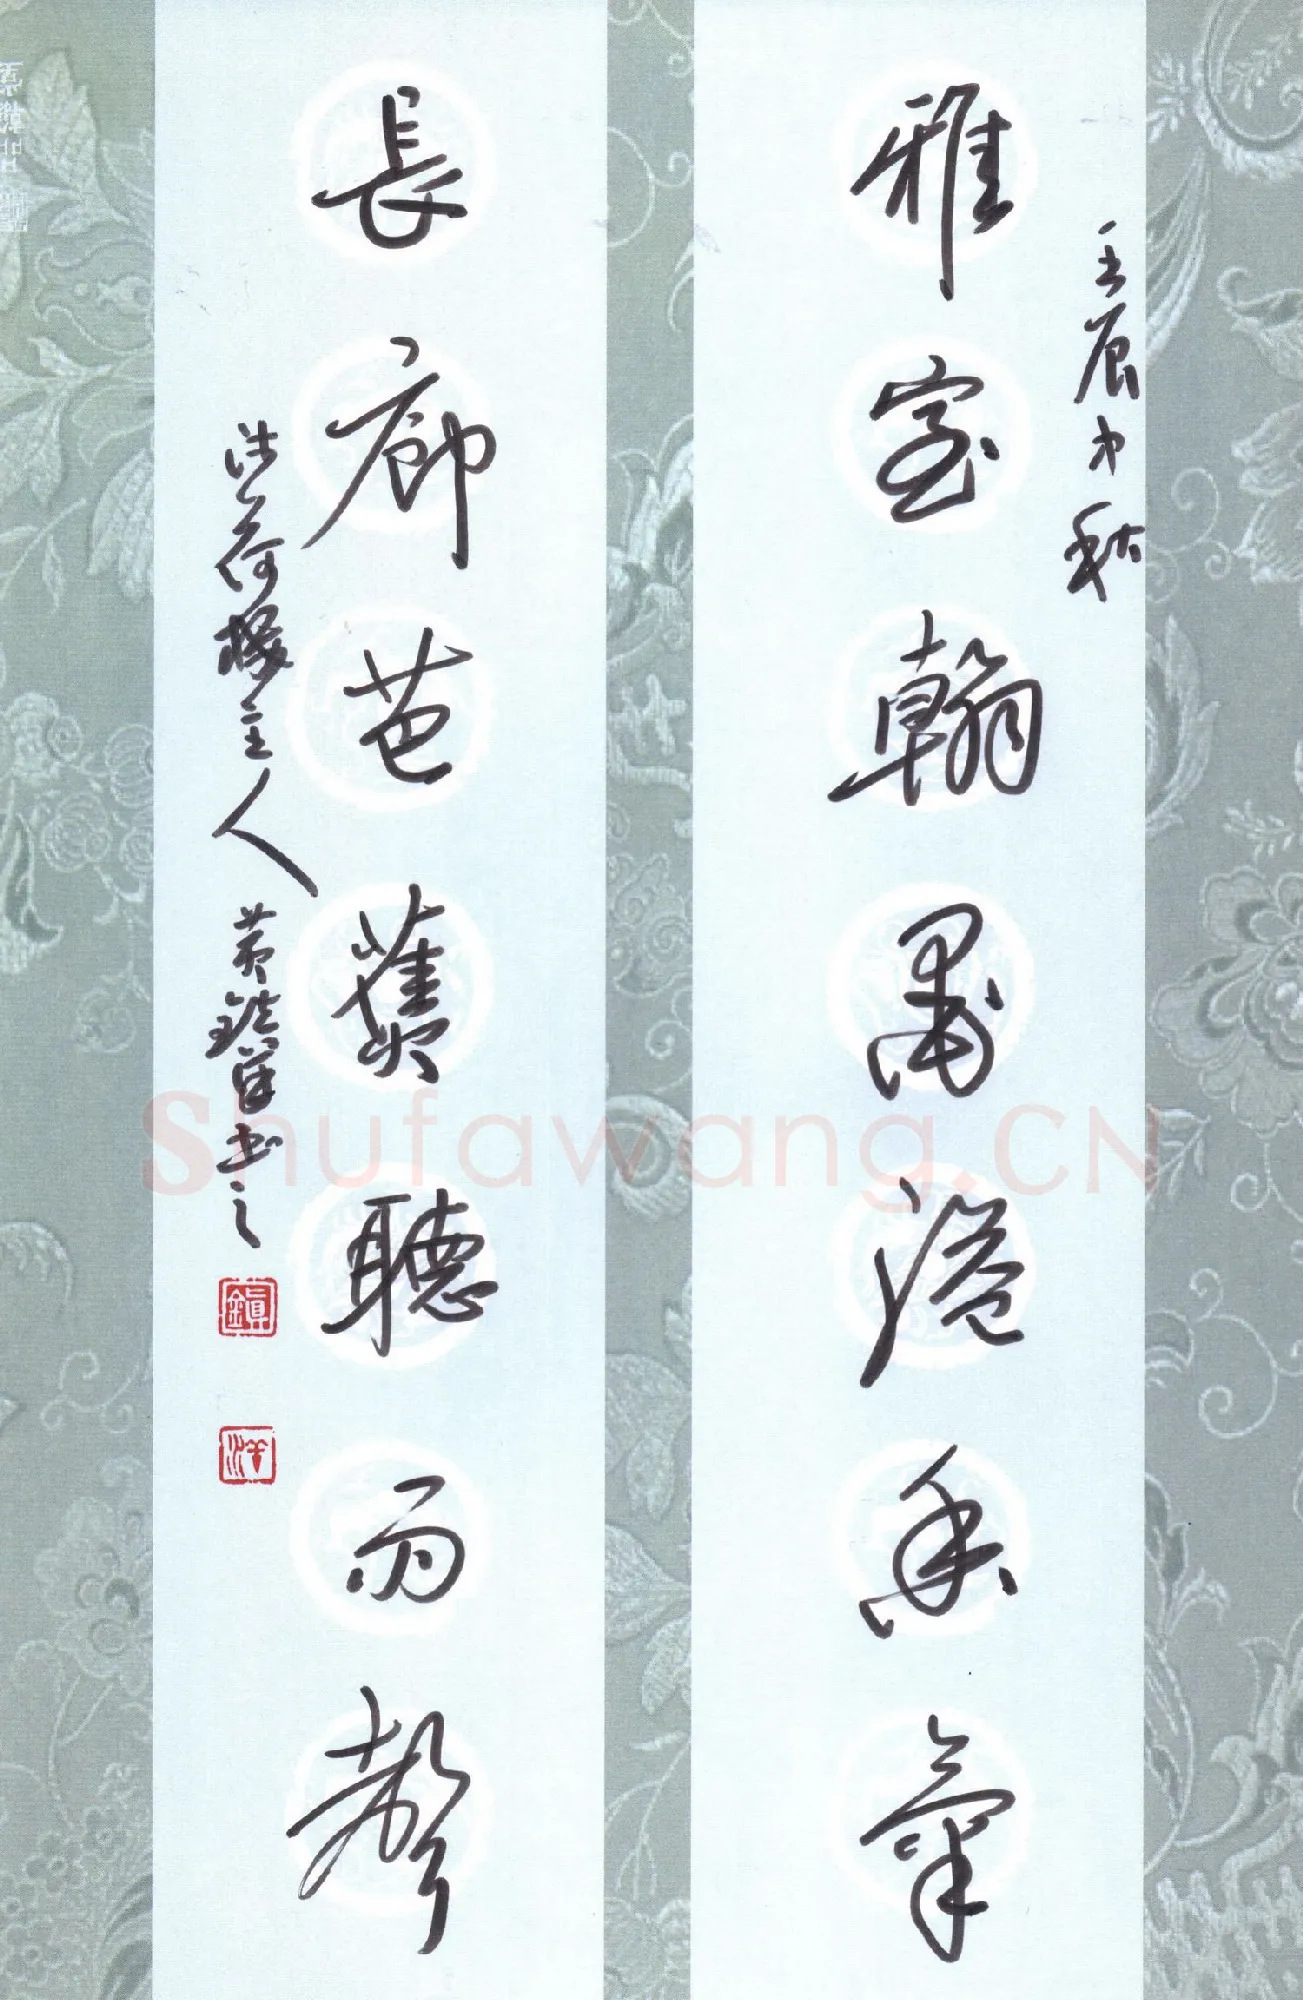 壬辰中秋
雅室翰墨溢香氣
長廊芭蕉聽雨聲
荷樓主人 黃鎮 書之
鎮
洋
Shufawang.CN